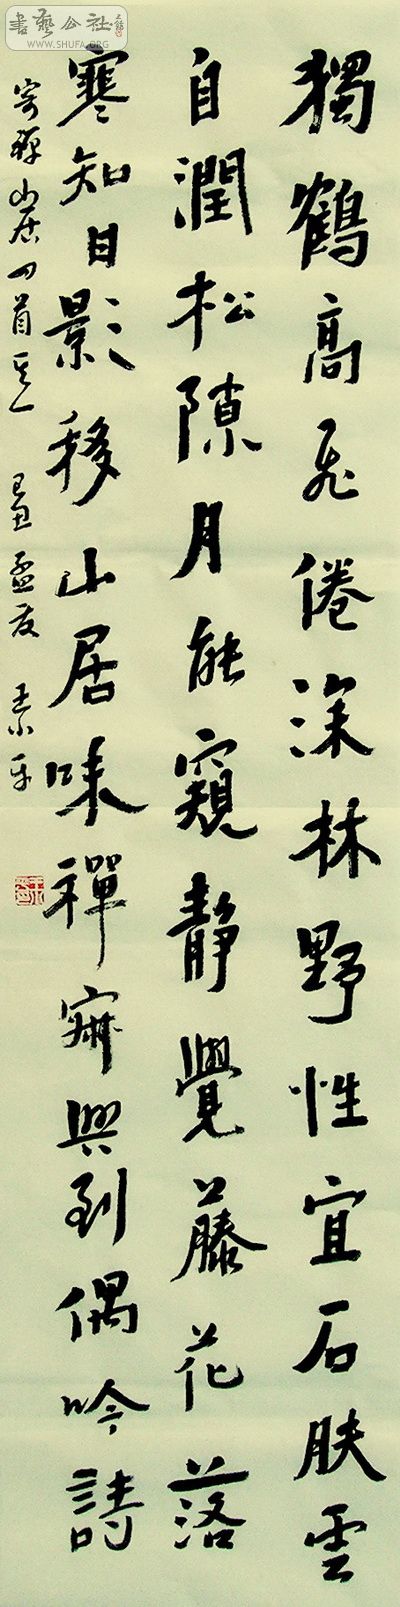 書藝公社
WWW.SHUFA.ORG
獨鶴高飛倦深林野性宜石膚雲
自潤松隙月能窺靜覺藤花落
寒知日影移山居味禪寂興到偶吟詩
寄禪山居四首其一 己丑孟夏